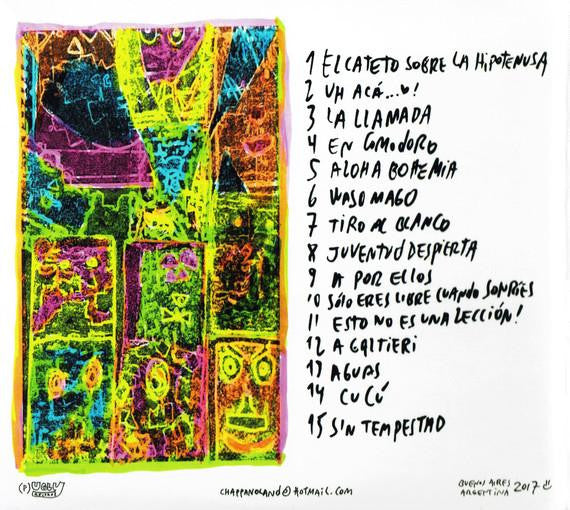 1 EL CATETO SOBRE LA HIPOTENUSA
2 UH ACÁ...!
3 LA LLAMADA
4 EN COMODORO
5 ALOHA BOHEMIA
6 VASO MAGO
7 TIRO AL BLANCO
8 JUVENTUD DESPIERTA
9 A POR ELLOS
10 SÓLO ERES LIBRE CUANDO SONRÍES
11 ESTO NO ES UNA LECCIÓN!
12 A GALTIERI
13 AGUAS
14 CUCÚ
15 SIN TEMPESTAD
(P) UGLY
CHAPPANOLAND@HOTMAIL.COM
BUENOS AIRES
ARGENTINA 2017